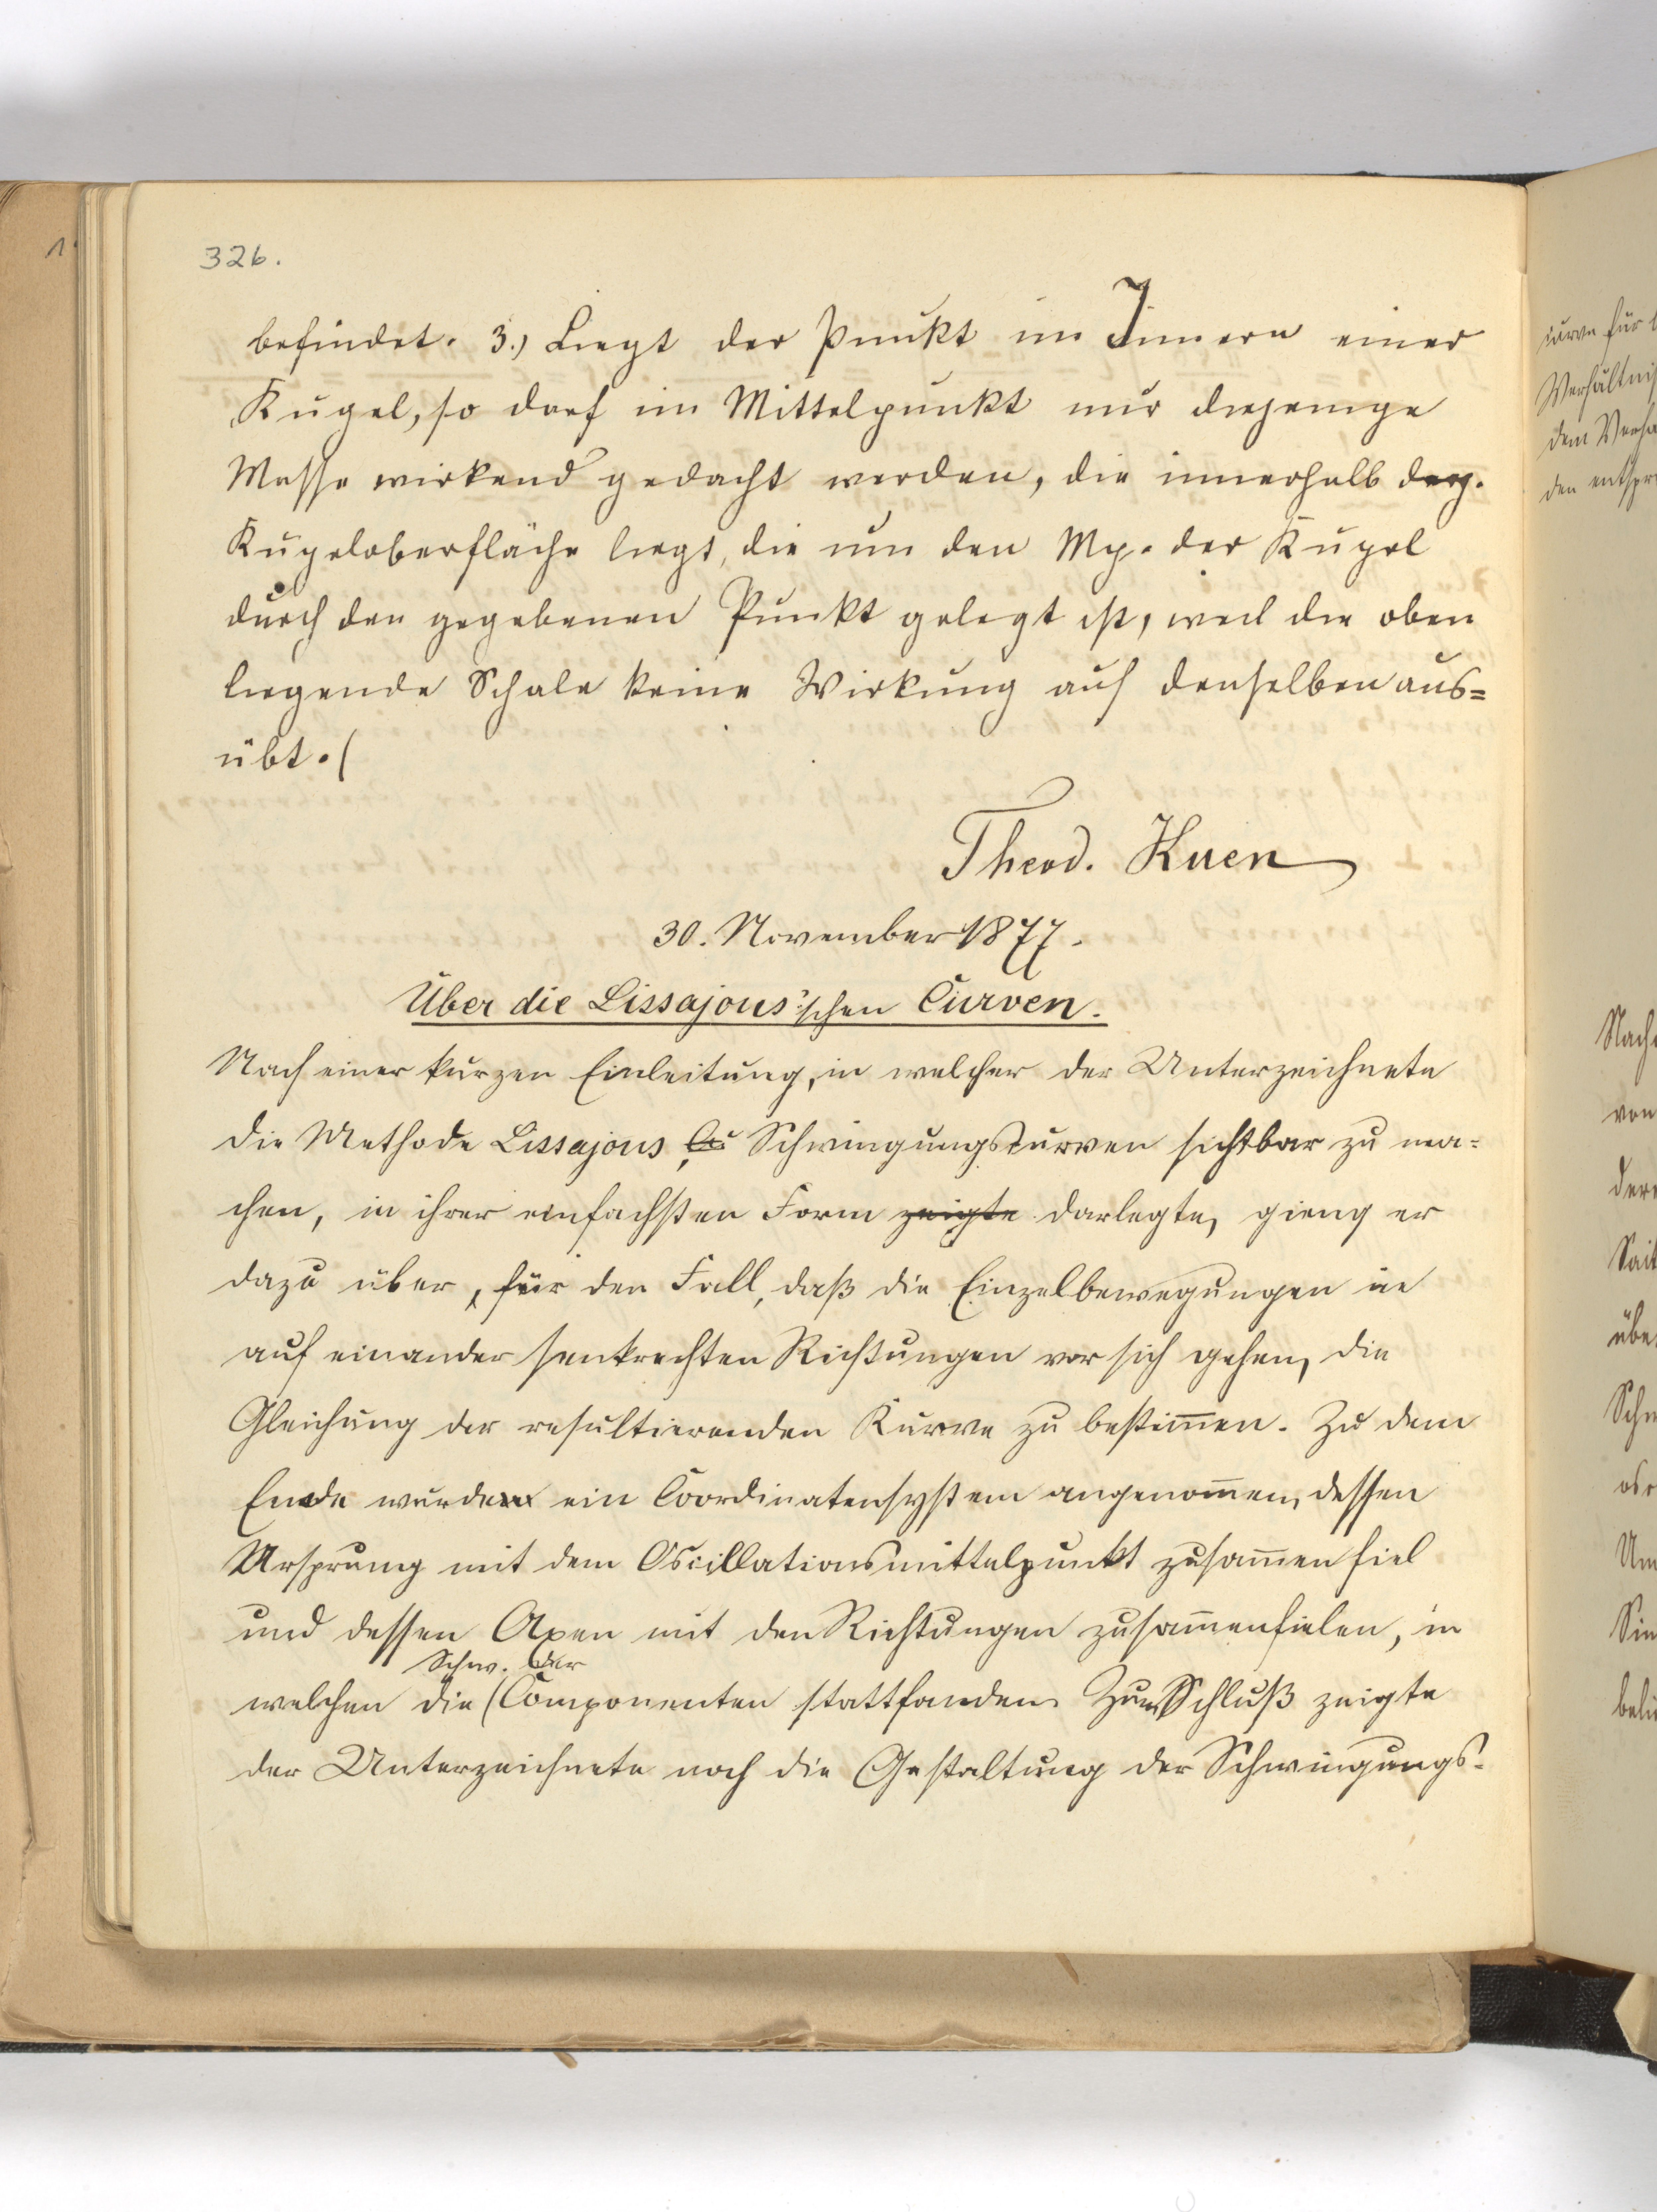 326.
befindet. 3.) Liegt der Punkt im Innern einer
Kugel, so darf im Mittelpunkt nur diejenige
Masse wirkend gedacht werden, die innerhalb derj.
Kugeloberfläche liegt, die um den Mp. der Kugel
durch den gegebenen Punkt gelegt ist, weil die oben
liegende Schale keine Wirkung auf denselben aus=
übt.(
Theod. Kuen
30. November 1877.
Über die Lissajous'schen Curven.
Nach einer kurzen Einleitung, in welcher der Unterzeichnete
die Methode Lissajous Schwingungscurven sichtbar zu ma-
chen, in ihrer einfachsten Form zeigte darlegte, gieng er
dazu über, für den Fall, daß die Einzelbewegungen in
auf einander senkrechten Richtungen vor sich gehen, die
Gleichung der resultierenden Kurve zu bestim̄en. Zu dem
Ende wurde ein Coordinatensystem angenom̄en, dessen
Ursprung mit dem Oscillationsmittelpunkt zusam̄en fiel
und dessen Axen mit den Richtungen zusam̄enfielen, in
Schw. der
welchen die (Componenten stattfanden. Zum Schluß zeigte
der Unterzeichnete noch die Gestaltung der Schwingungs-
curve für
Verhältnis
dem Verhä
den entspr
Nach
von
Sait
übe